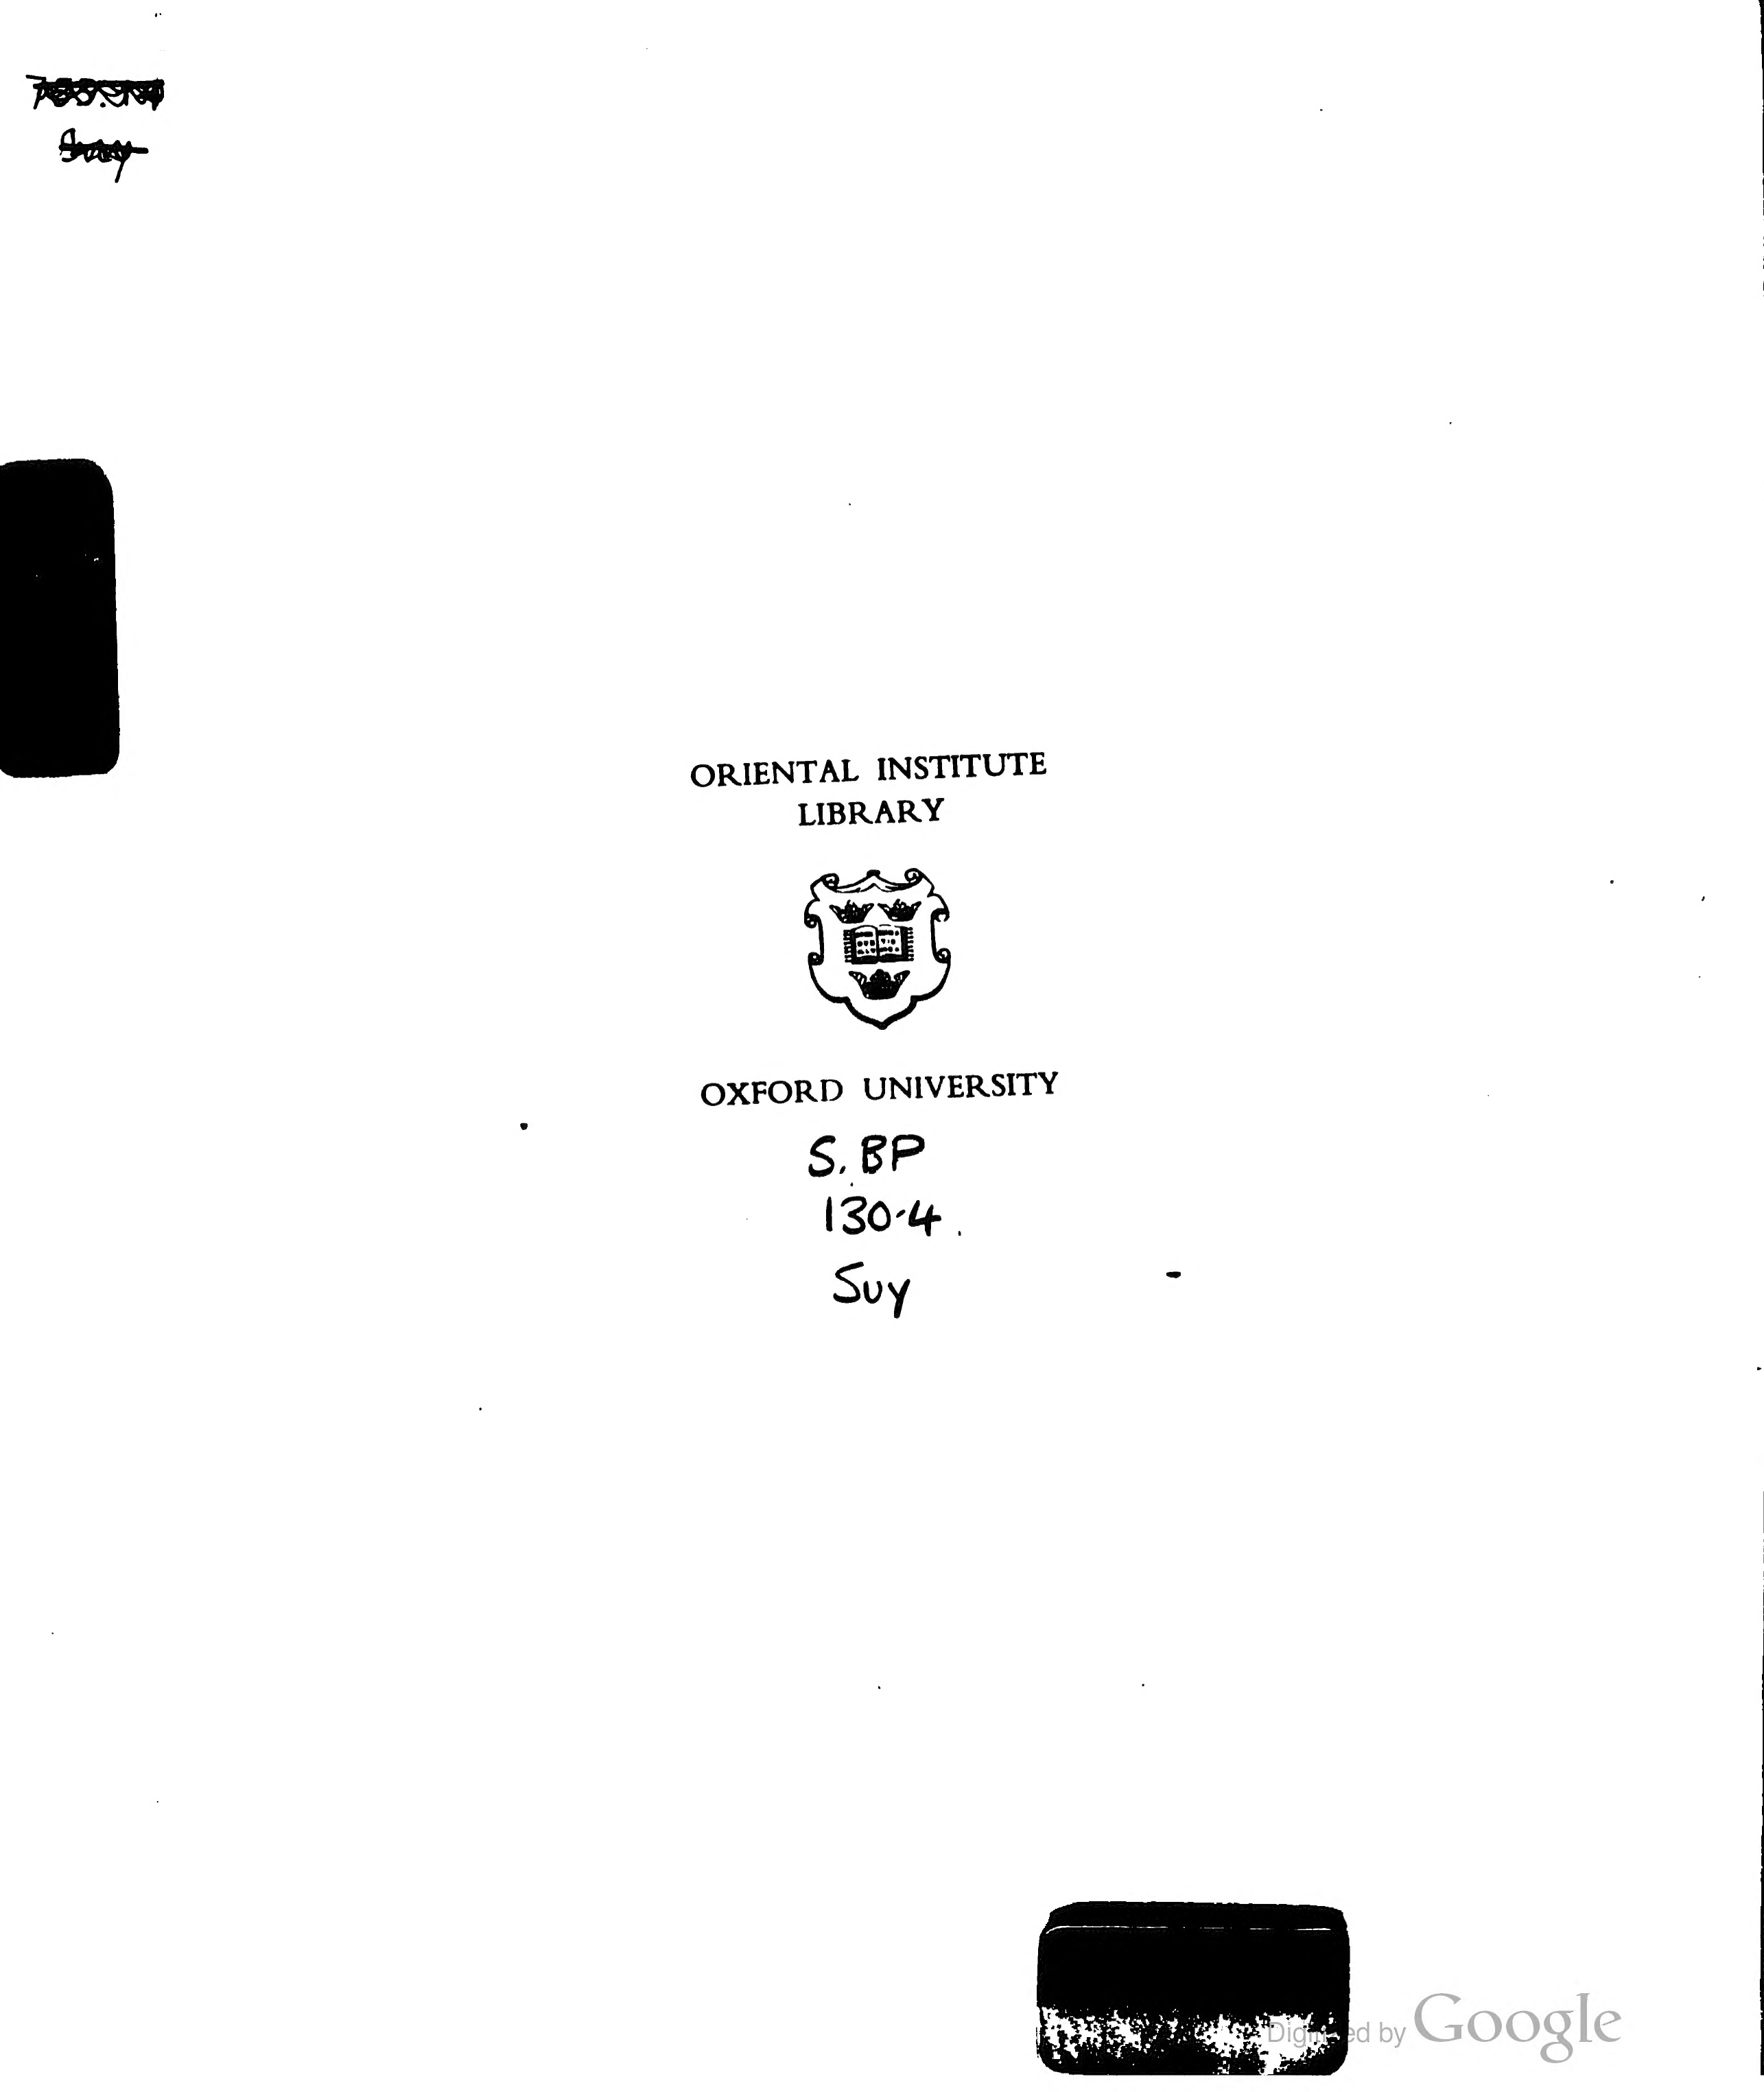 ORIENTAL INSTITUTE
LIBRARY
OXFORD UNIVERSITY
S. BP
130.4
Suy
Digitized by Google